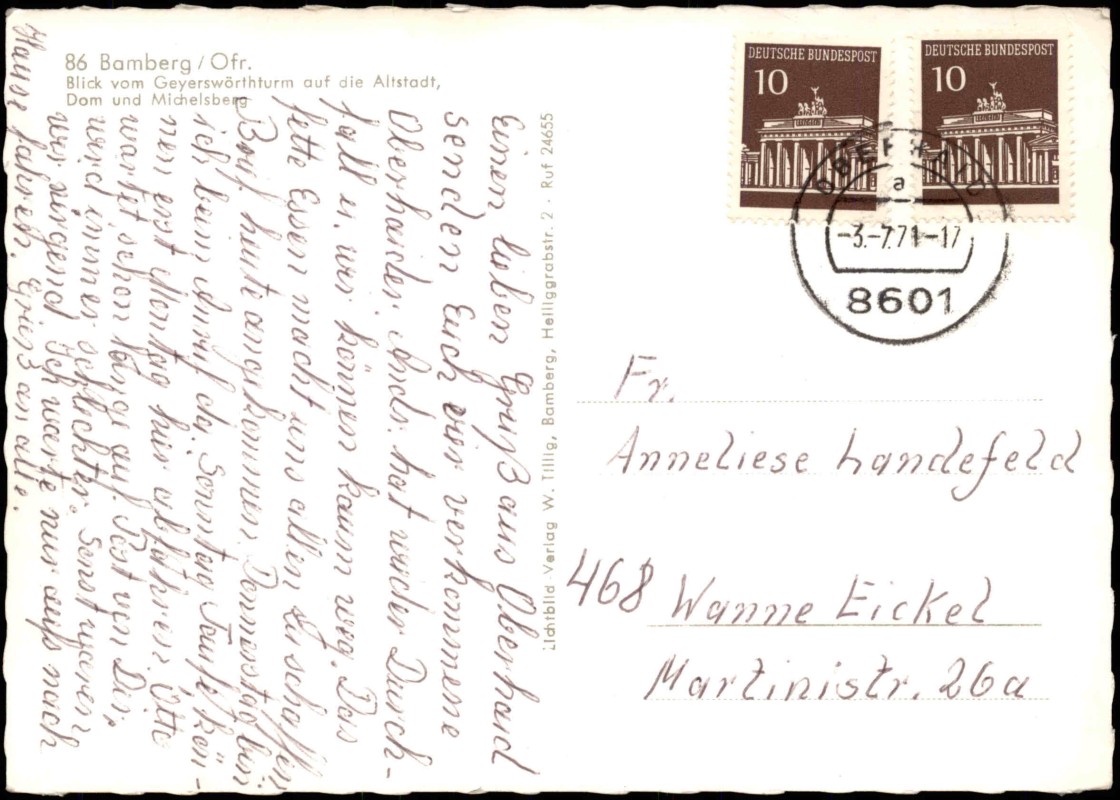 86 Bamberg / Ofr.
Blick vom Geyerswörthturm auf die Altstadt,
Dom und Michelsberg
Einen lieben Gruß aus Oberhaid
senden Euch vier verkommene
Oberhaider. Andr. hat wieder Durch-
fall u. wir können kaum weg. Das
fette Essen macht uns allen zu schaffen
Brief heute angekommen. Donnerstag bin
ich beim Anruf da. Sonntag Taufe kön-
nen erst Montag hier abfahren.
wartet schon lange auf Post von Dir,
wird immer schlechter. Sonst waren
wir nirgend. Ich warte nur aufs nach
Hause fahren. Gruß an alle.
Lichtbild-Verlag W. Tillig, Bamberg, Heiliggrabstr. 2 · Ruf 24655
DEUTSCHE BUNDESPOST
10
DEUTSCHE BUNDESPOST
10
OBERHAID
a
-3.-7.71-17
8601
Fr.
Anneliese Landefeld
468 Wanne Eickel
Martinistr. 26a